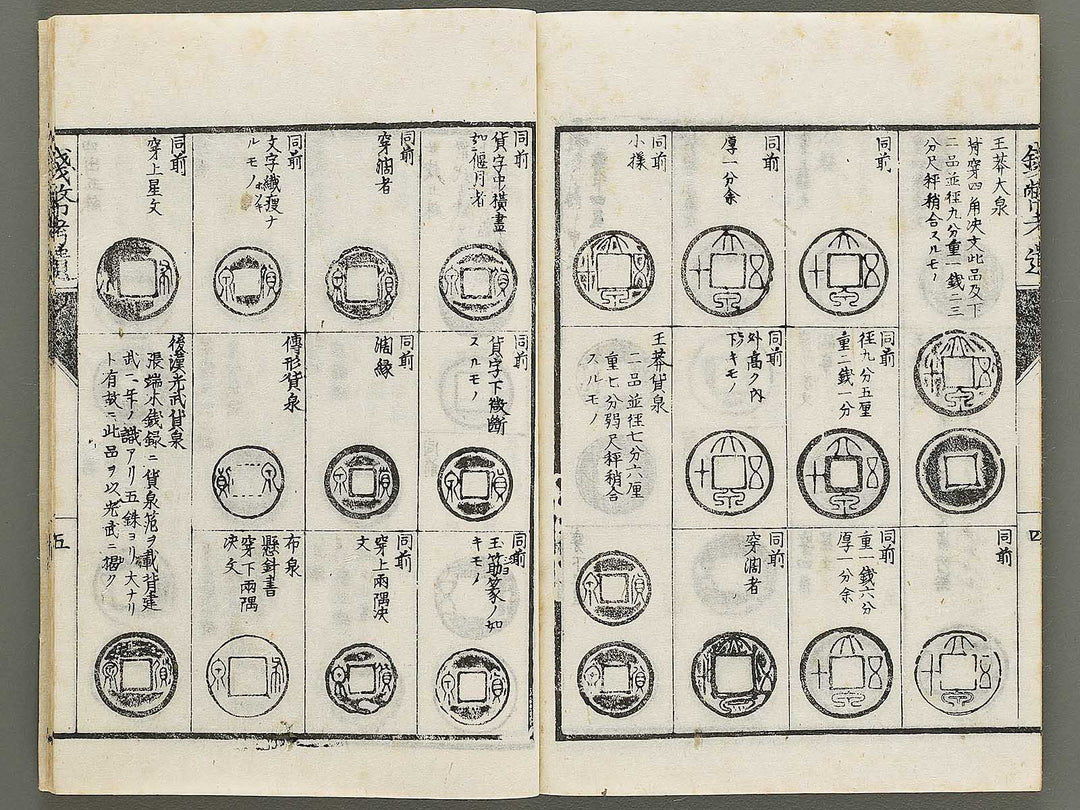 王莽大泉
背穿四角决文此品及下
二品並径九分重一銭二三
分尺秤稍合スルモノ
同前
同前
径九分五厘
重二銭一分
同前
重一銭六分
厚一分余
同前
厚一分余
同前
外高ク内
下キモノ
同前
穿濶者
同前
小様
王莽貨泉
二品並径七分六厘
重七分弱尺秤稍合
スルモノ
四
同前
貨字中横畫
如偃月者
同前
貨字下微断
スルモノ
同前
玉筯篆ノ如
キモノ
同前
穿濶者
同前
濶縁
同前
穿上兩隅决
文
同前
文字纎痩ナ
ルモノ
傳形貨泉
布泉
懸針書
穿下兩隅
决文
同前
穿上星文
後漢光武貨泉
張端木銭録ニ貨泉范ヲ載背建
武二年ノ識アリ五銖ヨリ大ナリ
ト有故ニ此品ヲ以光武ニ揭ク
五